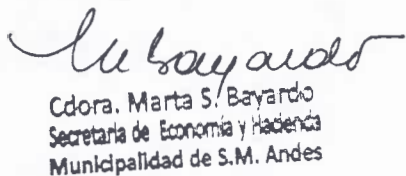 M Bayardo
Cdora. Marta S. Bayardo
Secretaria de Economía y Hacienda
Municipalidad de S.M. Andes